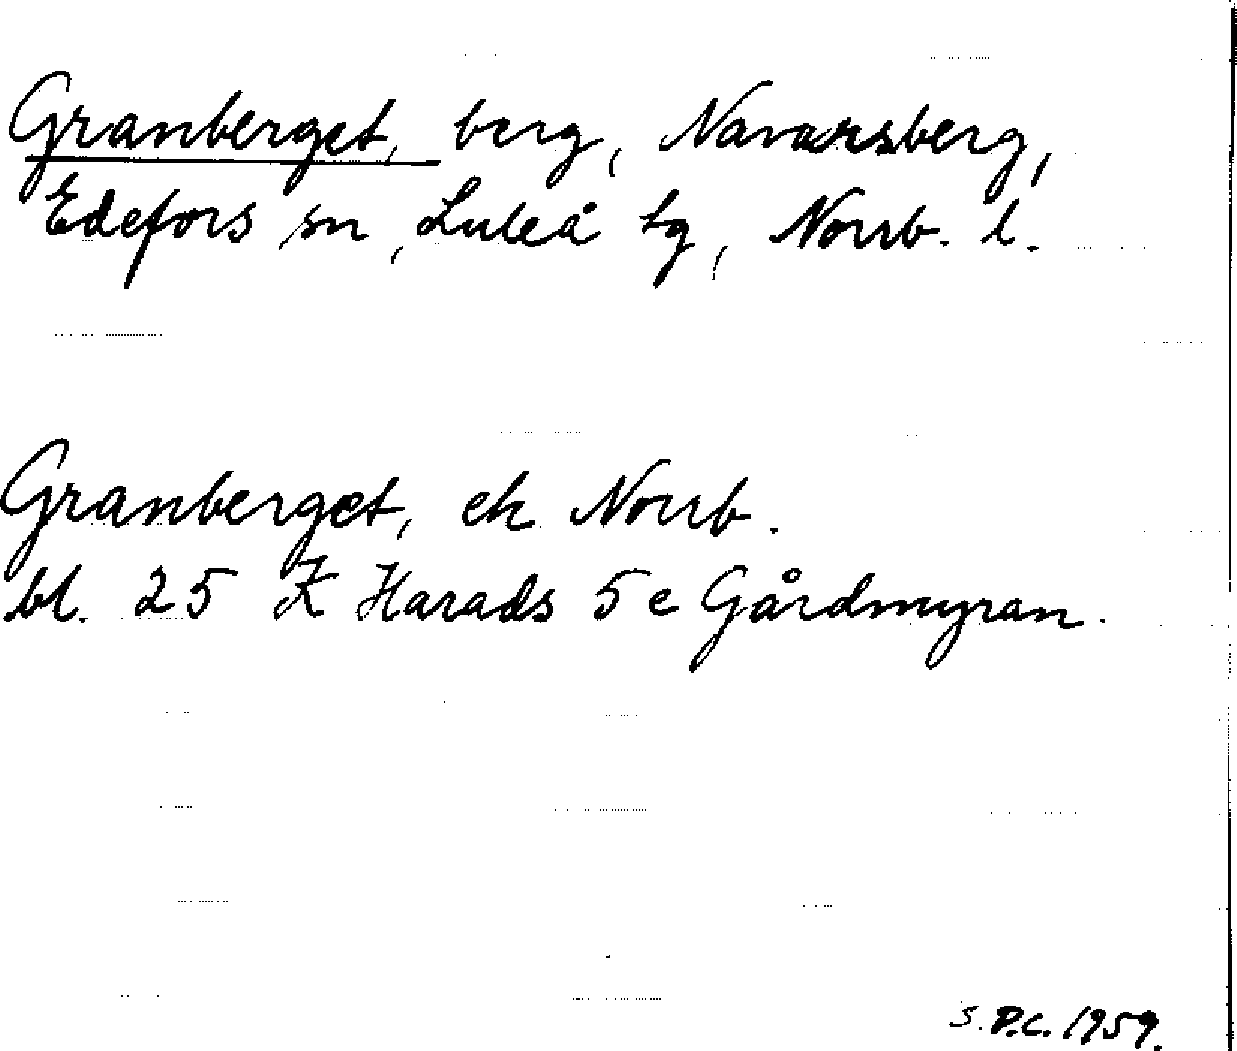 Granberget, berg, Navarsberg,
Edefors sn, Luleå tg, Norrb. l.
Granberget, ek Norrb.
bl. 25 Z Harads 5 e Gårdmyran.
S.D.C. 1959.